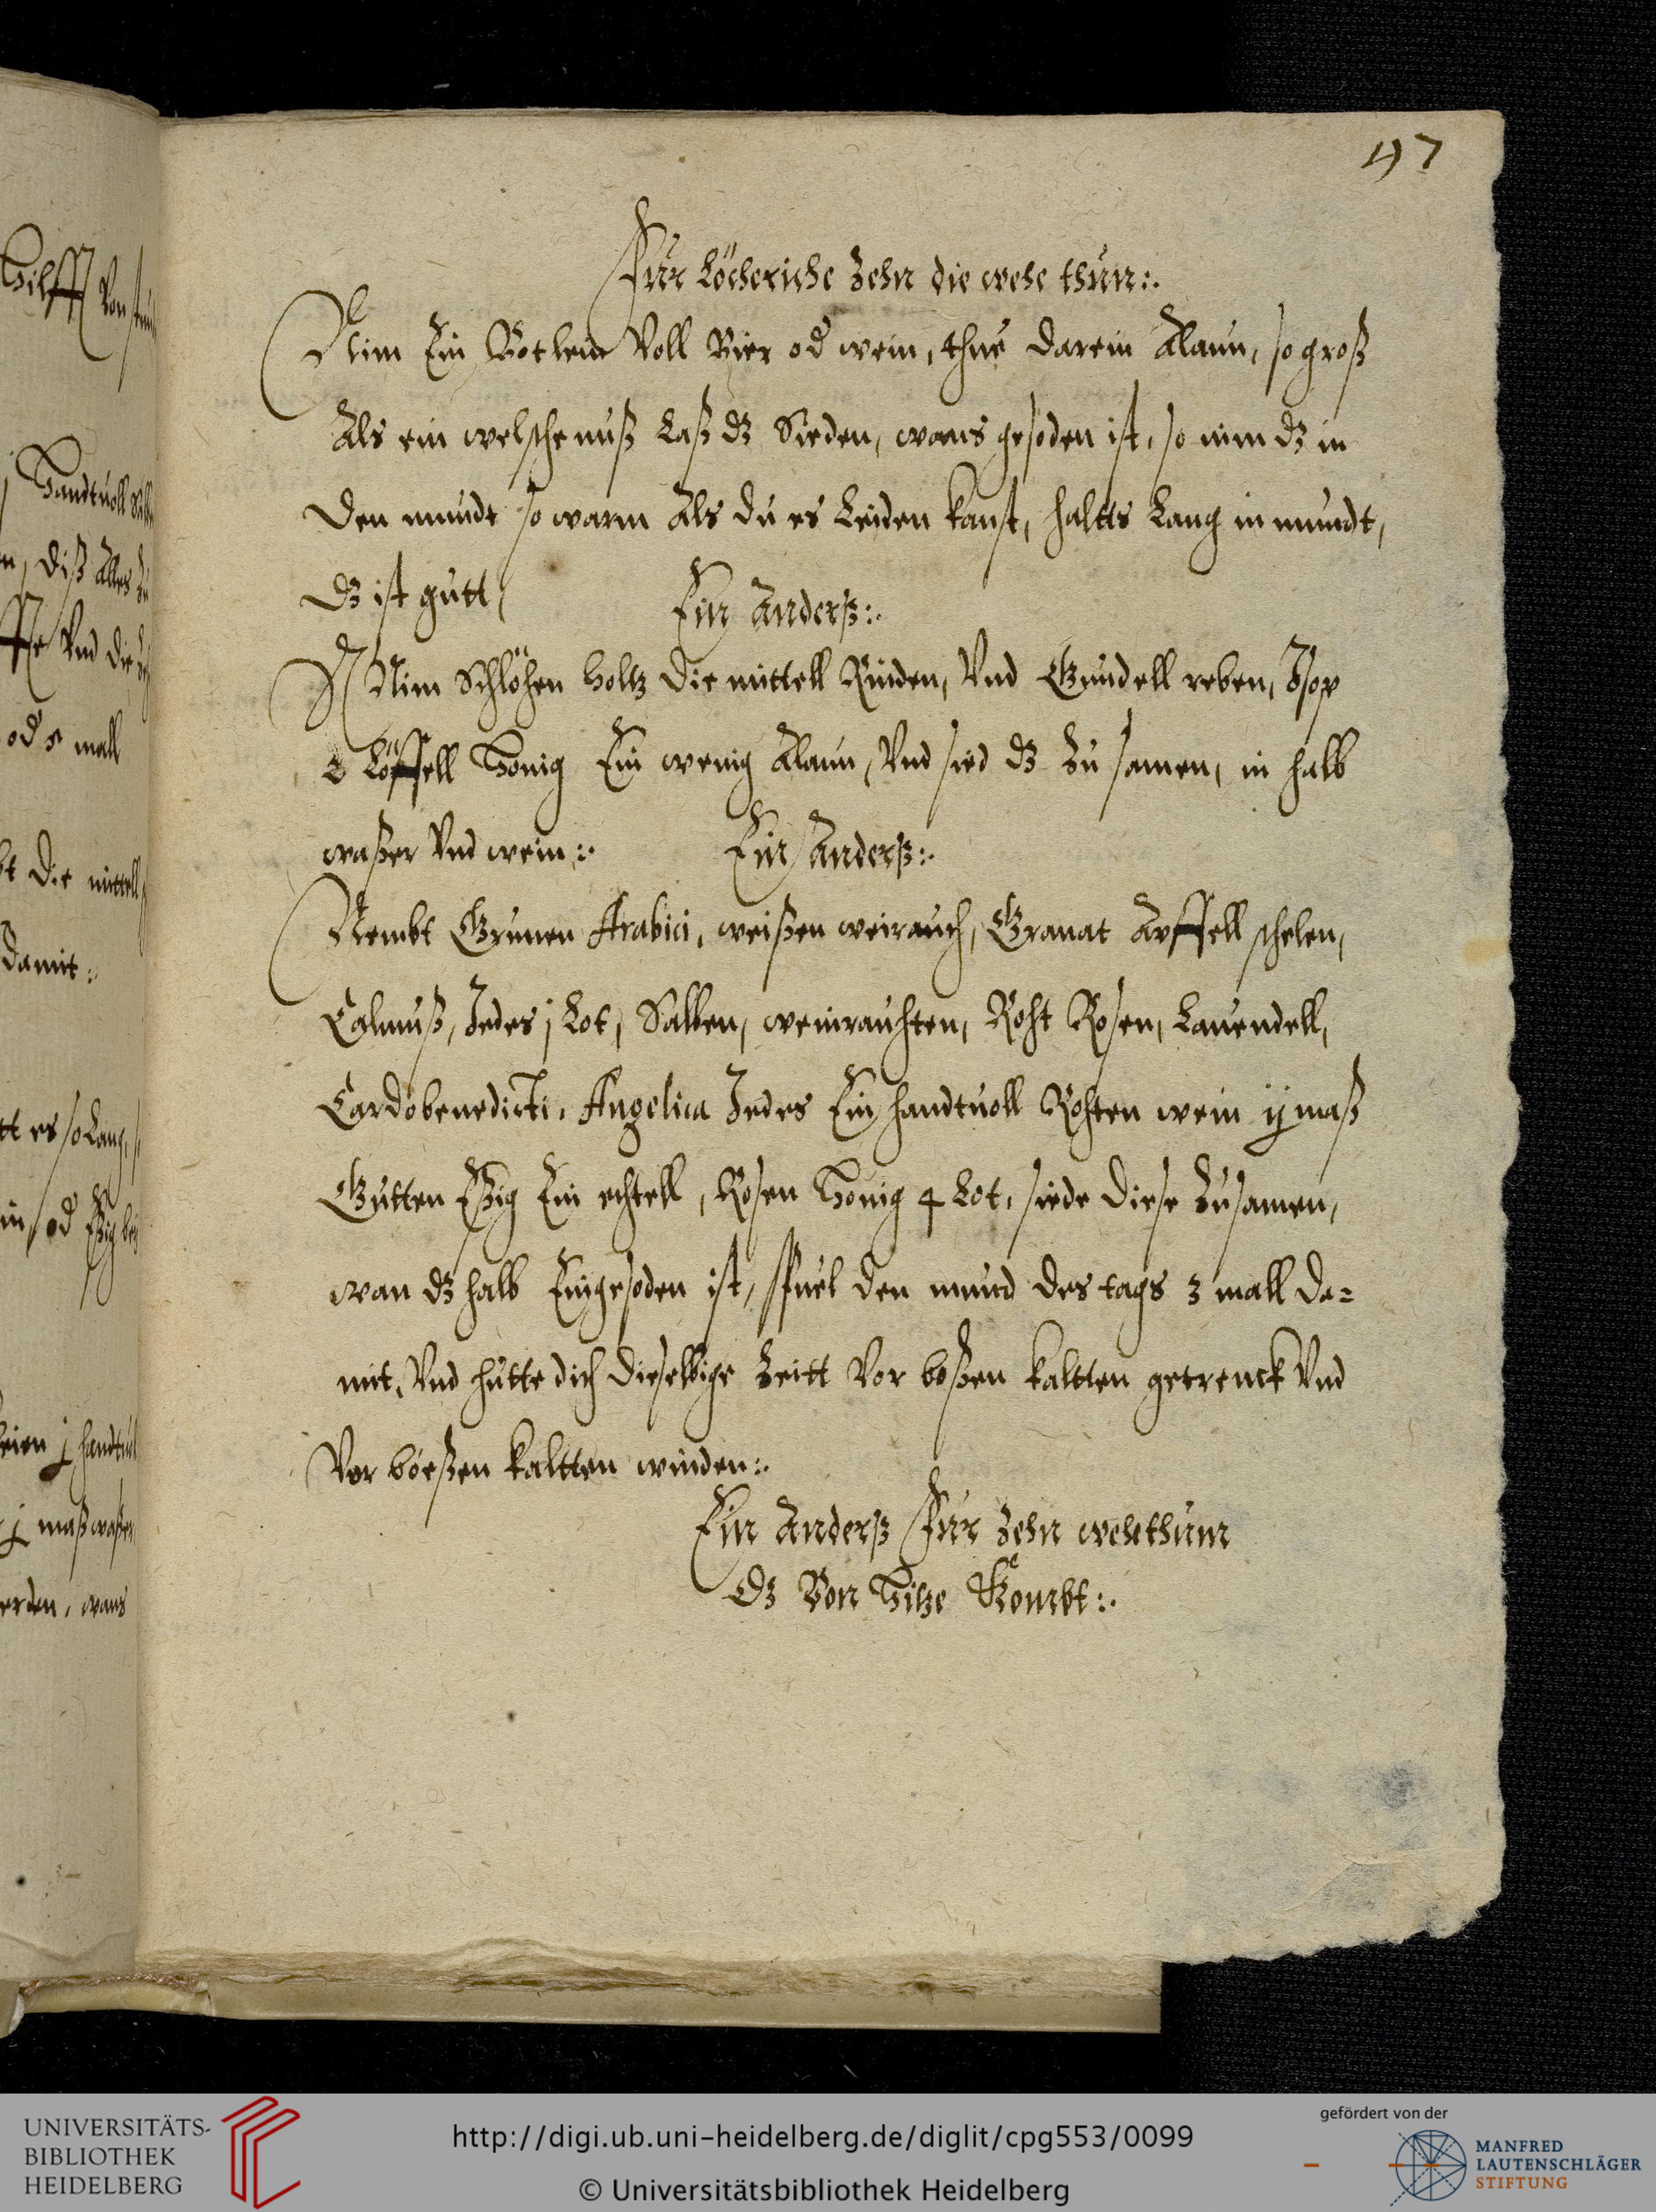 47
Fur Löcheriche Zehn die wehe thun:.
Nim Ein Votlein Voll Bier od wein, thue darein Alaun, so groß
Als ein welsche nuß Laß dz Sieden, wans gesoden ist, so nim dz in
den mundt so warm Als du es Leiden kanst, haltts Lang in mundt,
dz ist gutt
Ein Anderß:.
Nim Schlöhen holtz die mittell Rinden, Vnd Gundell reben, Isop
Löffell Honig Ein wenig Alaun, Vnd sied dz Zu samen, in halb
waßer Vnd wein:.
Ein Anderß:.
Nembt Grumen Arabici, weißen weirauch, Granat Apffell schelen,
Calmuß, Jedes j Lot, Salben, weinrauhten, Roht Rosen, Lauendell,
Cardobenedicti, Angelica Jedes Ein handtuoll Rohten wein ij maß
Gutten Eßig Ein echtell, Rosen Honig 4 Lot, siede diese Zusamen,
wan dz halb Eingesoden ist, spuel den mund des tags 3 mall da=
mit, Vnd hutte dich dieselbige Zeitt Vor boßen kaltten getrenck Vnd
Vor boeßen kaltten winden:.
Ein Anderß Fur Zehn wehethum
dz Von Hitze Kombt:.
Hilff Von
j Handtuoll
diß Alles Zu
Vnd die
od 5 mall
die mittell
damit:.
es so Lang,
od Eßig
j handtuol
j maß waßer
wans
UNIVERSITÄTS-
BIBLIOTHEK
HEIDELBERG
http://digi.ub.uni-heidelberg.de/diglit/cpg553/0099
© Universitätsbibliothek Heidelberg
gefördert von der
MANFRED
LAUTENSCHLÄGER
STIFTUNG